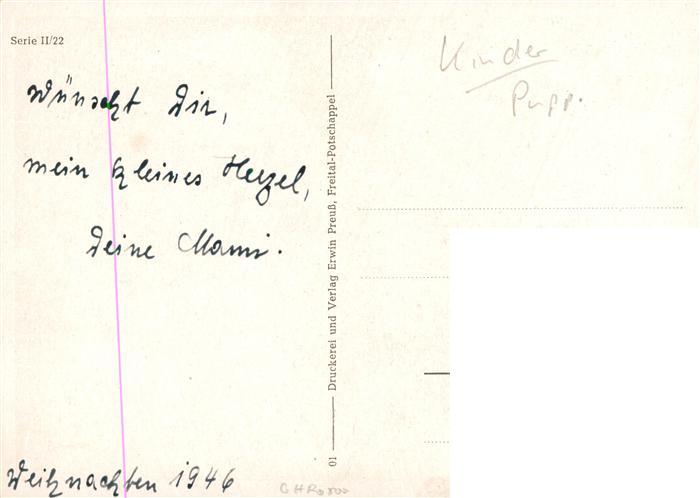 Serie II/22
Wünscht Dir,
mein kleines Herzel,
Deine Mami.
Weihnachten 1946
01 Druckerei und Verlag Erwin Preuß, Freital-Potschappel
Kinder
Pupp.